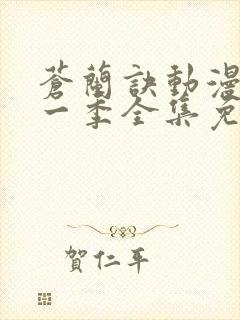 蒼蘭訣動漫
一季全集免
賀仁平